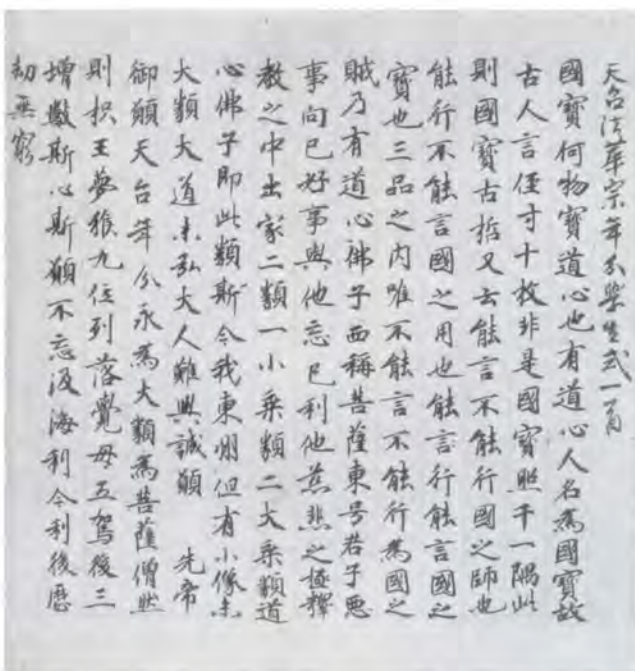 天台法華宗年分學生式一首
國寶何物寶道心也有道心人名爲國寶故
古人言徑寸十枚非是國寶照千一隅此
則國寶古哲又云能言不能行國之師也
能行不能言國之用也能言行能言國之
寶也三品之内唯不能言不能行爲國之
賊乃有道心佛子西稱菩薩東号君子悪
事向己好事與他忘己利他慈悲之極釋
教之中出家二類一小乘類二大乘類道
心佛子即此類斯今我東州但有小像未
大類大道未弘大人難興誠願 先帝
御願天台年分永爲大類爲菩薩僧然
則枳王夢猴九位列落覺母五駕後三
増數斯心斯願不忘汲海利今利後歴
劫無窮